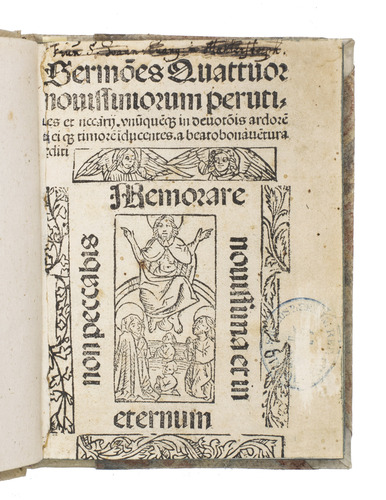 Sermões Quattuor
nouissimorum peruti-
les et nccarij. vnūquēqȝ in deuotōis ardorē
ci qȝ timorē īducentes. a beato bonauētura
editi
Memorare
nouissima et in
eternum
non peccabis